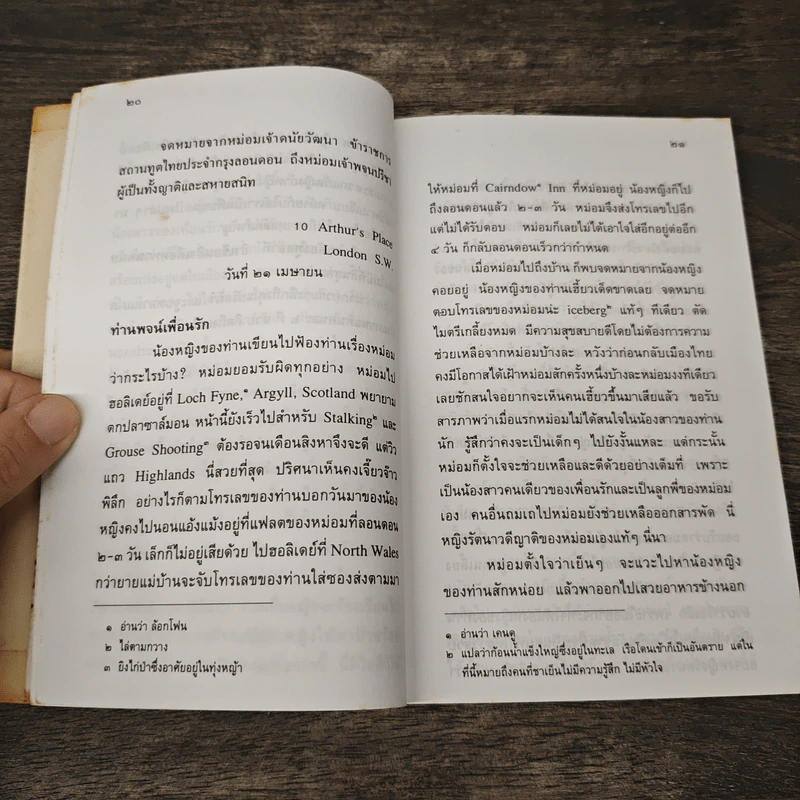 ๒๐
จดหมายจากหม่อมเจ้าดนัยวัฒนา ข้าราชการ
สถานทูตไทยประจำกรุงลอนดอน ถึงหม่อมเจ้าพจนปรีชา
ผู้เป็นทั้งญาติและสหายสนิท
10 Arthur's Place
London S.W.
วันที่ ๒๑ เมษายน
ท่านพจน์เพื่อนรัก
น้องหญิงของท่านเขียนไปฟ้องท่านเรื่องหม่อม
ว่ากระไรบ้าง? หม่อมยอมรับผิดทุกอย่าง หม่อมไป
ฮอลิเดย์อยู่ที่ Loch Fyne,๑ Argyll, Scotland พยายาม
ตกปลาซาล์มอน หน้านี้ยังเร็วไปสำหรับ Stalking๒ และ
Grouse Shooting๓ ต้องรอจนเดือนสิงหาจึงจะดี แต่วิว
แถว Highlands นี่สวยที่สุด ปริศนาเห็นคงเจี๊ยวจ๊าว
พิลึก อย่างไรก็ตามโทรเลขของท่านบอกวันมาของน้อง
หญิงคงไปนอนแอ้งแม้งอยู่ที่แฟลตของหม่อมที่ลอนดอน
๒-๓ วัน เล็กก็ไม่อยู่เสียด้วย ไปฮอลิเดย์ที่ North Wales
กว่ายายแม่บ้านจะจับโทรเลขของท่านใส่ซองส่งตามมา
๑ อ่านว่า ล็อกโฟน
๒ ไล่ตามกวาง
๓ ยิงไก่ป่าซึ่งอาศัยอยู่ในทุ่งหญ้า
๒๑
ให้หม่อมที่ Cairndow๑ Inn ที่หม่อมอยู่ น้องหญิงก็ไป
ถึงลอนดอนแล้ว ๒-๓ วัน หม่อมจึงส่งโทรเลขไปอีก
แต่ไม่ได้รับตอบ หม่อมก็เลยไม่ได้เอาใจใส่อีกอยู่ต่ออีก
๔ วัน ก็กลับลอนดอนเร็วกว่ากำหนด
เมื่อหม่อมไปถึงบ้าน ก็พบจดหมายจากน้องหญิง
คอยอยู่ น้องหญิงของท่านเฮี้ยวเด็ดขาดเลย จดหมาย
ตอบโทรเลขของหม่อมน่ะ iceberg๒ แท้ๆ ทีเดียว ตัด
ไมตรีเกลี้ยงหมด มีความสุขสบายดีโดยไม่ต้องการความ
ช่วยเหลือจากหม่อมบ้างละ หวังว่าก่อนกลับเมืองไทย
คงมีโอกาสได้เฝ้าหม่อมสักครั้งหนึ่งบ้างละหม่อมงงทีเดียว
เลยชักสนใจอยากจะเห็นคนเฮี้ยวขึ้นมาเสียแล้ว ขอรับ
สารภาพว่าเมื่อแรกหม่อมไม่ได้สนใจในน้องสาวของท่าน
นัก รู้สึกว่าคงจะเป็นเด็กๆ ไปยังงั้นแหละ แต่กระนั้น
หม่อมก็ตั้งใจจะช่วยเหลือและดีด้วยอย่างเต็มที่ เพราะ
เป็นน้องสาวคนเดียวของเพื่อนรักและเป็นลูกพี่ของหม่อม
เอง คนอื่นถมเถไปหม่อมยังช่วยเหลือออกสารพัด นี่
หญิงรัตนาวดีญาติของหม่อมเองแท้ๆ นี่นา
หม่อมตั้งใจว่าเย็นๆ จะแวะไปหาน้องหญิง
ของท่านสักหน่อย แล้วพาออกไปเสวยอาหารข้างนอก
๑ อ่านว่า เคนดู
๒ แปลว่าก้อนน้ำแข็งใหญ่ซึ่งอยู่ในทะเล เรือโดนเข้าก็เป็นอันตราย แต่ใน
ที่นี้หมายถึงคนที่ชาเย็นไม่มีความรู้สึก ไม่มีหัวใจ